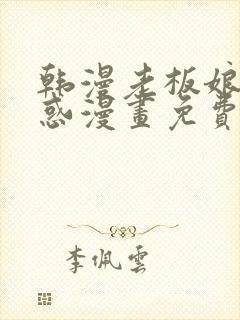 韩漫老板娘
惑漫畫免費
李佩雲